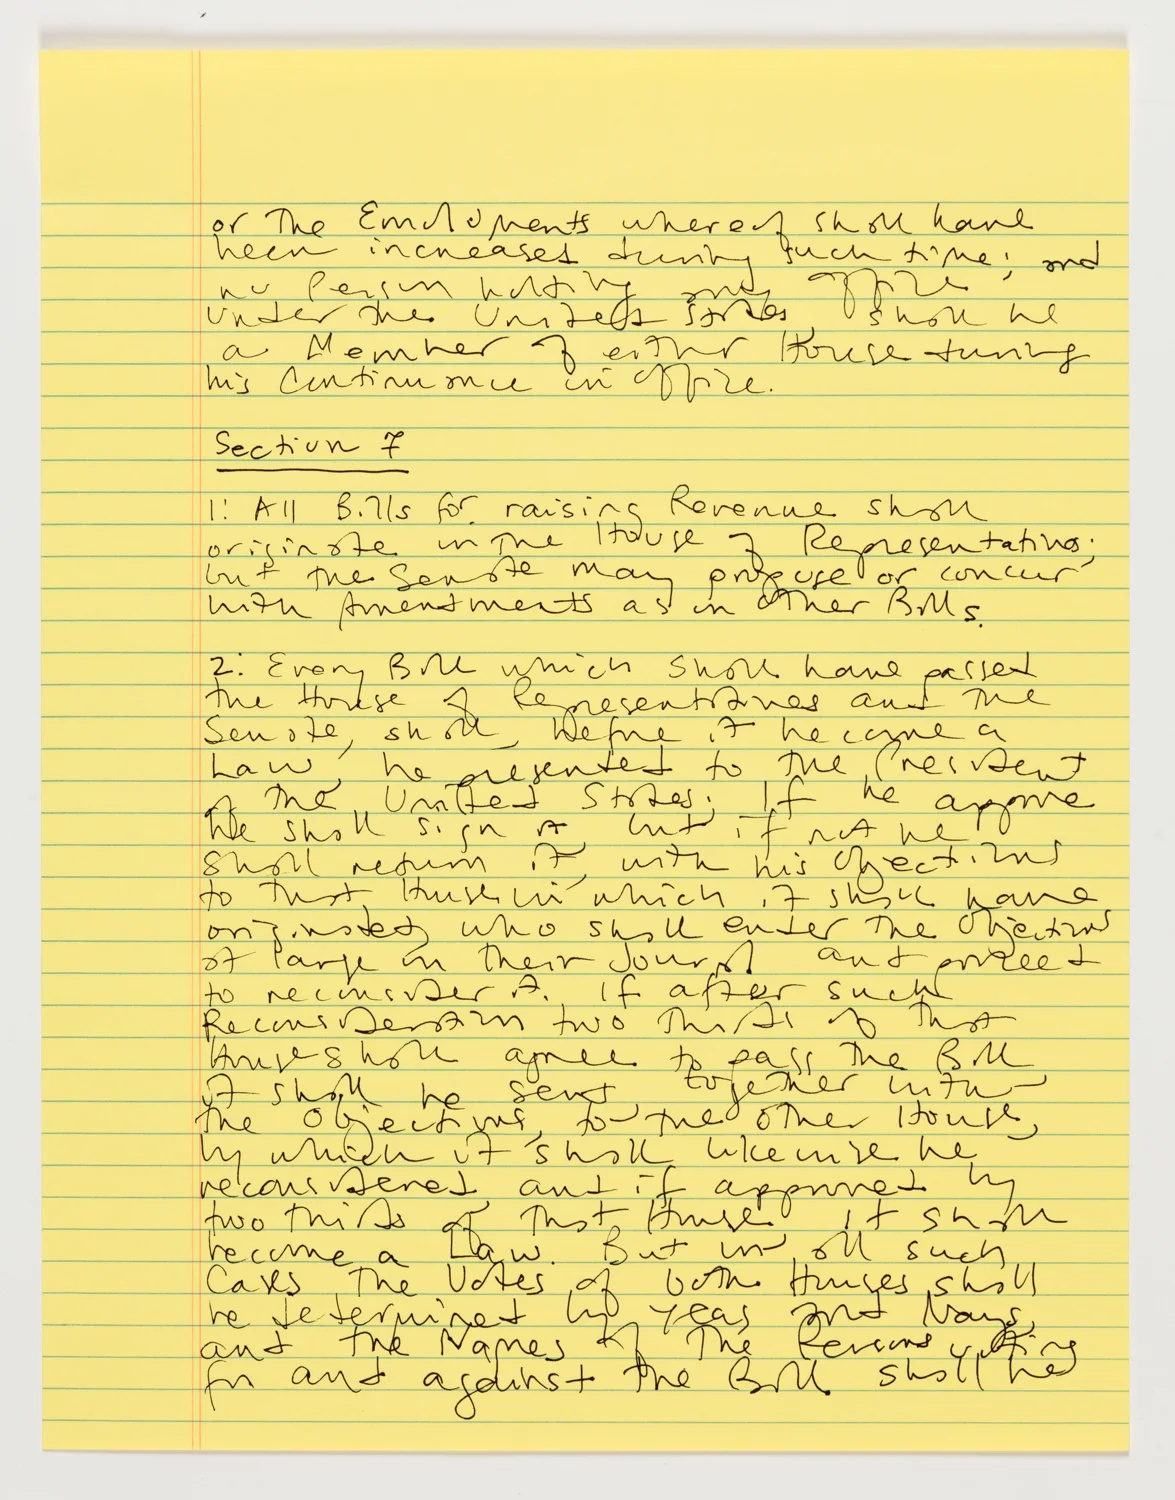 or The Emoluments whereof shall have
been increased during such time; and
no Person holding any office
under the United States, shall be
a Member of either House during
his Continuance in office.
Section 7
1: All Bills for raising Revenue shall
originate in the House of Representatives;
but the Senate may propose or concur
with Amendments as in other Bills.
2: Every Bill which shall have passed
the House of Representatives and the
Senate, shall, before it become a
Law, be presented to the President
of the United States; If he approve
he shall sign it but if not he
shall return it, with his Objections
to that House in which it shall have
originated, who shall enter the Objections
at large on their Journal and proceed
to reconsider it. If after such
Reconsideration two thirds of that
House shall agree to pass the Bill
it shall be sent together with
the Objections, to the other House,
by which it shall likewise be
reconsidered and if approved by
two thirds of that House it shall
become a Law. But in all such
Cases the Votes of both Houses shall
be determined by yeas and Nays,
and the Names of The Persons voting
for and against the Bill shall be